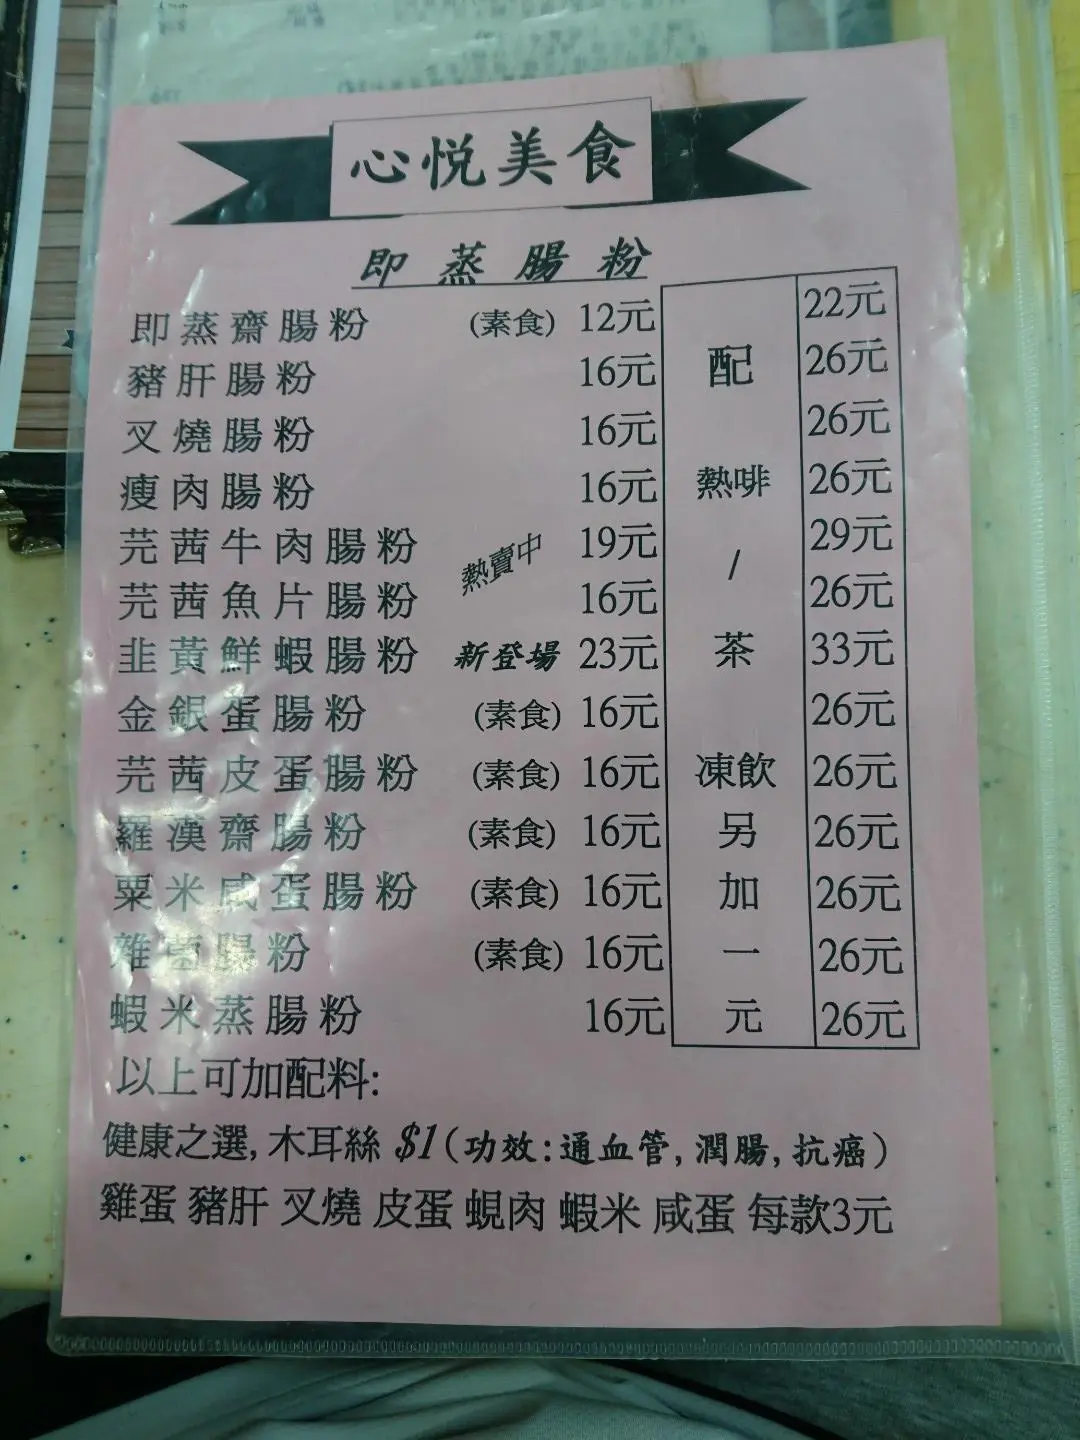 心悦美食
即蒸腸粉
即蒸齋腸粉 (素食) 12元 22元
豬肝腸粉 16元 配 26元
叉燒腸粉 16元 26元
瘦肉腸粉 16元 熱啡 26元
芫茜牛肉腸粉 熱賣中 19元 / 29元
芫茜魚片腸粉 16元 26元
韭黃鮮蝦腸粉 新登場 23元 茶 33元
金銀蛋腸粉 (素食) 16元 26元
芫茜皮蛋腸粉 (素食) 16元 凍飲 26元
羅漢齋腸粉 (素食) 16元 另 26元
粟米咸蛋腸粉 (素食) 16元 加 26元
雜菌腸粉 (素食) 16元 一 26元
蝦米蒸腸粉 16元 元 26元
以上可加配料:
健康之選, 木耳絲 $1 (功效:通血管, 潤腸, 抗癌)
雞蛋 豬肝 叉燒 皮蛋 蜆肉 蝦米 咸蛋 每款3元